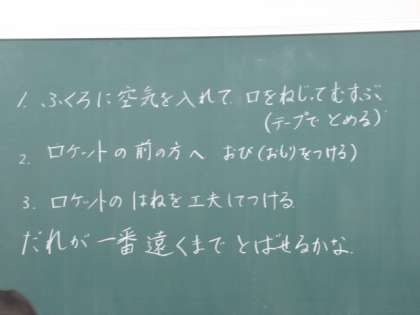 1. ふくろに空気を入れて 口をねじってむすぶ
(テープで とめる)
2. ロケットの前の方へ おび(おもりをつける)
3. ロケットの はねを工夫してつける
だれが 一番 遠くまで とばせるかな.